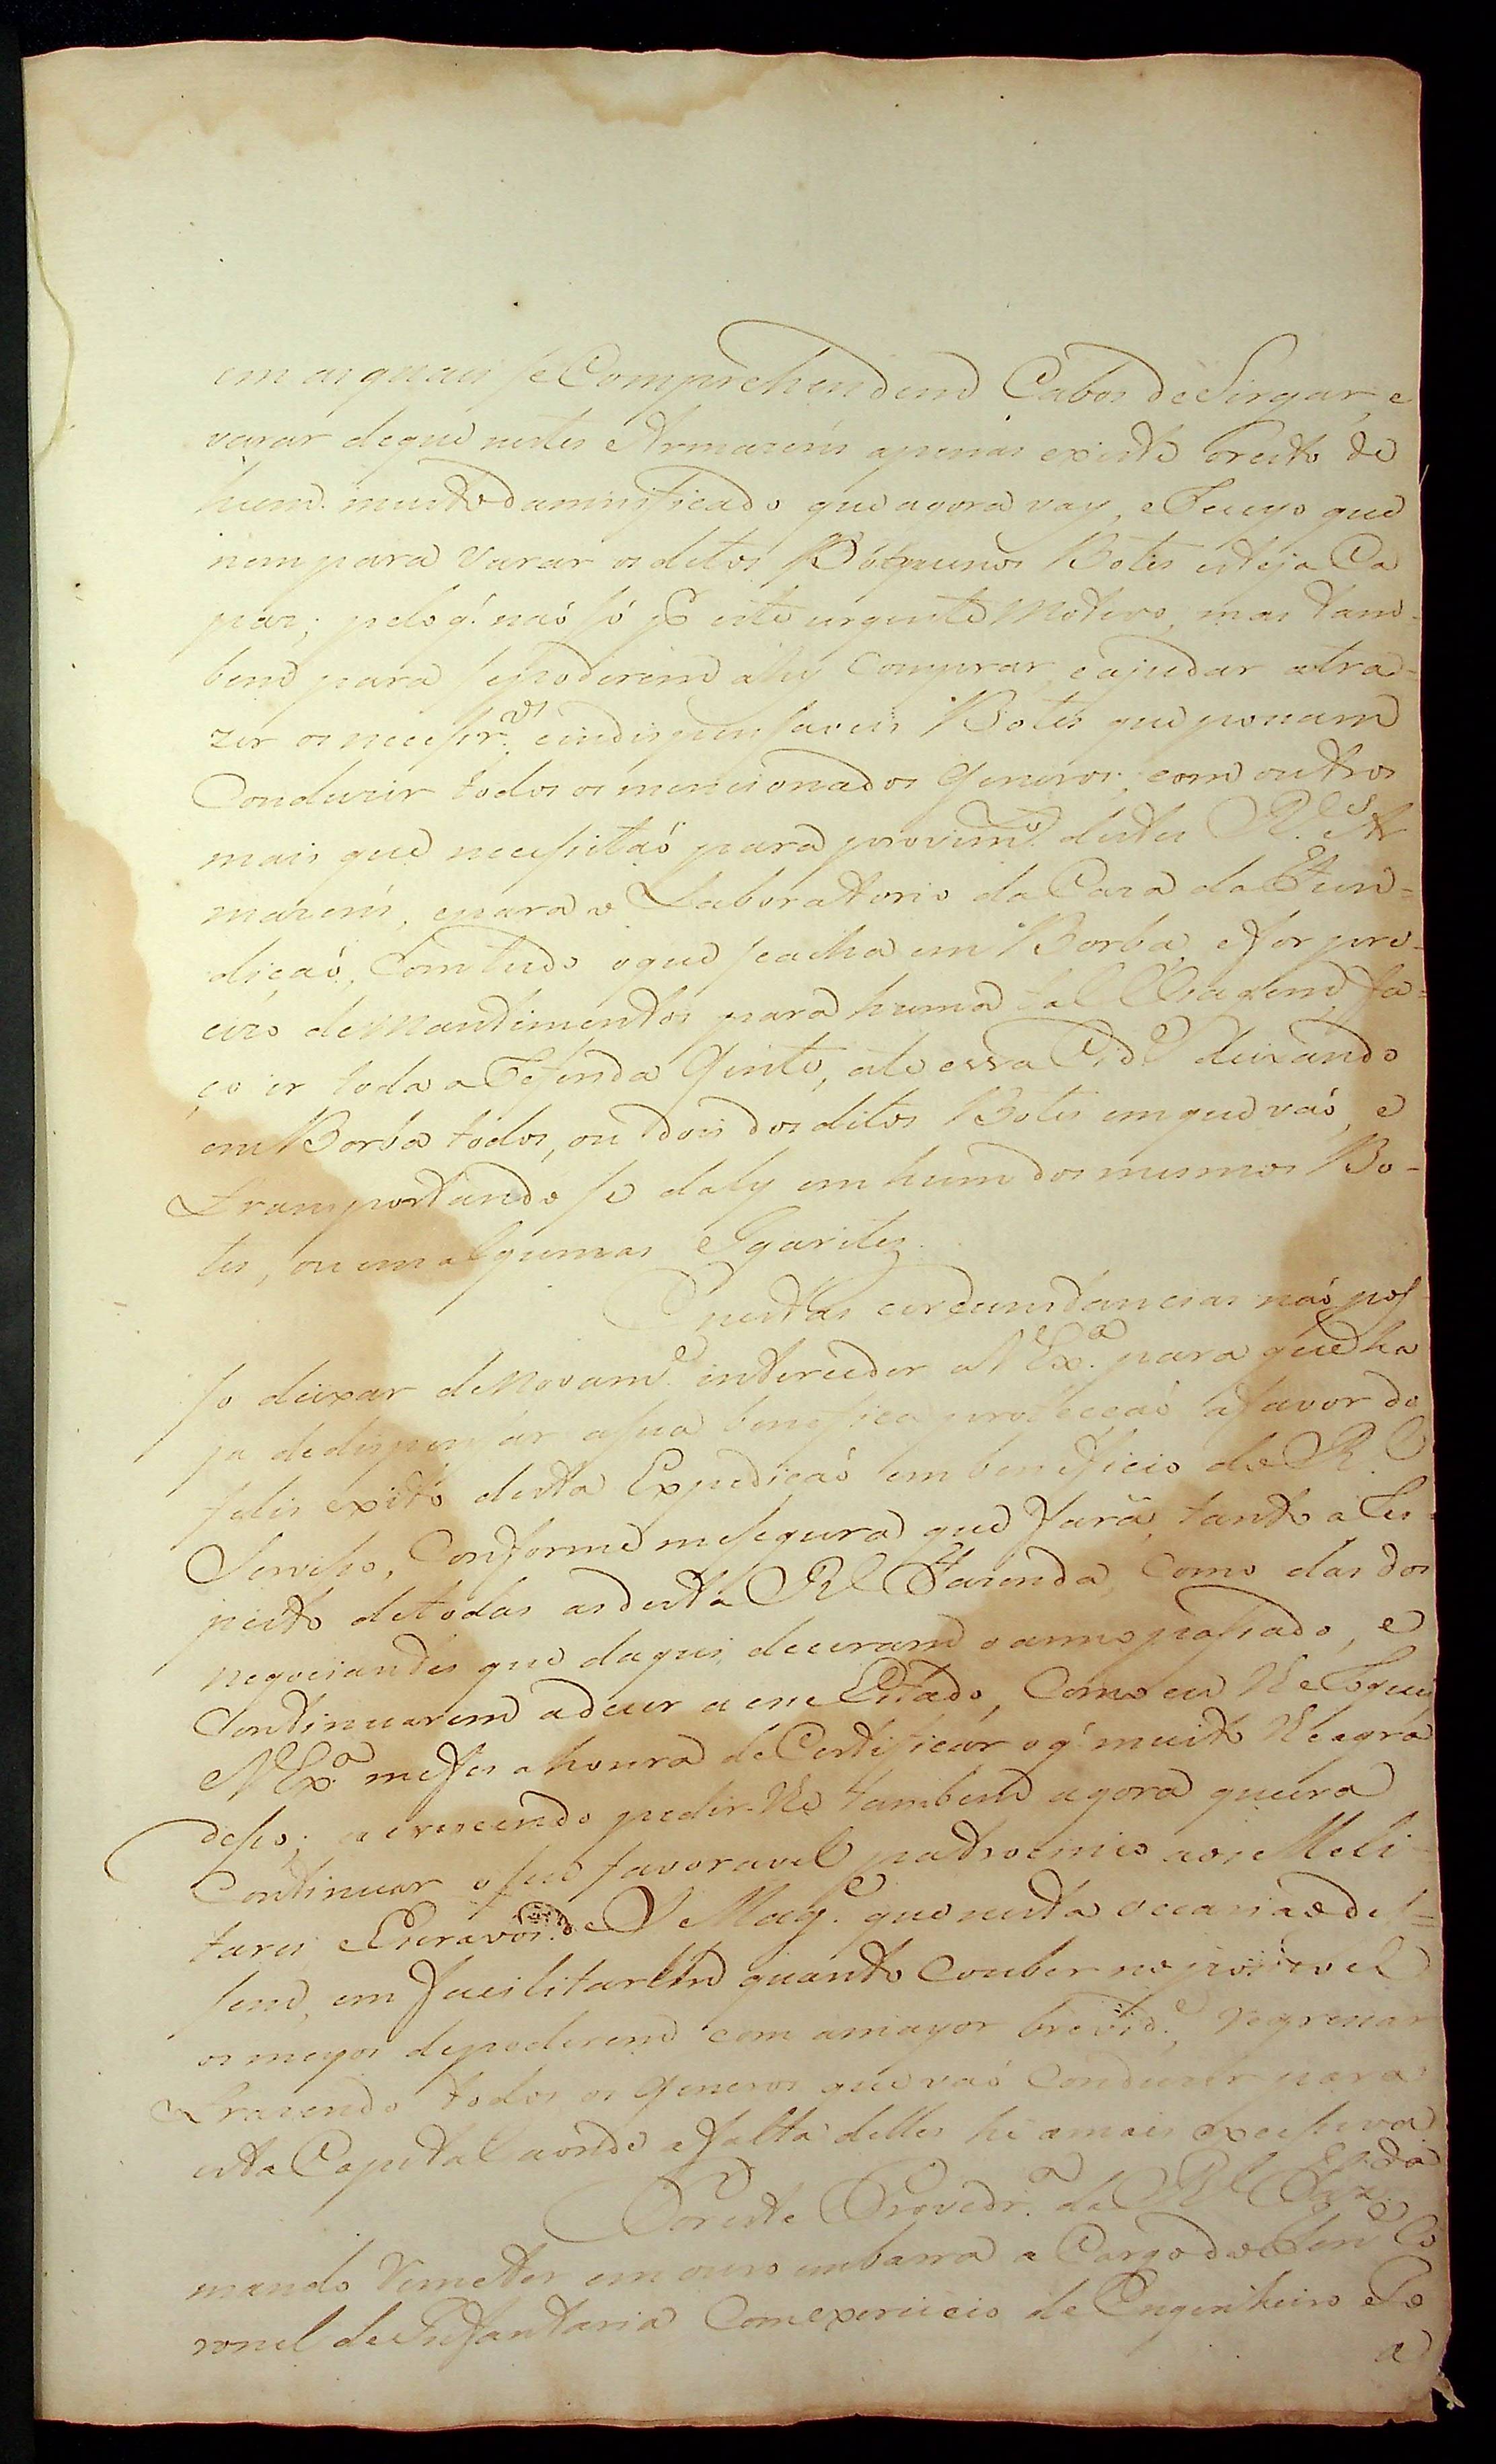 em as quais se Comprehendem Cabos de Sirgar, e
varar de que nestes Armazéns apenas existe oresto de
hum muito damnificado que agora vay, e Temo que
nem para varar os ditos Pequenos Botes esteja Ca
paz; pelo q. naó só p este urgente motivo, mas tam-
bem para sepoderem ahy Comprar, e ajudar atra-
zer os necessr.os eindispensaveis Botes que possam
Conduzir todos os mencionados Generos, com outros
mais que necessitaó para provim.to destes R.s Ar
mazéns, epara o Laboratorio da Caza da Fun-
diçaó, Comtudo oque seacha em Borba, e for pre-
cizo de Mantimentos para huma tal Viagem fa-
ço ir toda a Gente, até essa Cid.e deixando
em Borba todos, ou dois dos ditos Botes em que vaó, e
transportando se daly em hum dos mesmos Bo-
tes, ou em algumas Igarites.
E nestas circumstancias naó pos
so deixar de Novam.e interceder a V Ex.a para que ha
ja de dispensar asua benefica protecçaó afavor do
felis exito desta Expediçaó em beneficio do R.l
Serviço, Conforme mesegura que fará, tanto a Res-
peito detodas as desta Rl Fazenda, Como das dos
Negociantes que daqui deceram o anno passado, e
Continuarem adecer a esse Estado, Como eu
V Ex.a mefes ahonra de Certificar o q. muito lhe agra
deço; acrescendo pedir-lhe tambem agora queira
Continuar oseu favoravel patrocinio aos Meli-
tares, e Escravos de S Mag.e que nesta occasiaõ des-
sem, em facilitarlhe quanto Couber no possivel
os meyos depoderem com amayor brevid.e regressar
trazendo todos os Generos que vaó Conduzir para
esta Capital aonde afalta delles hé amais excessiva
Por esta Provedr.a da Rl Faz.da
mando Remeter em ouro em barra a Cargo do Ten.e Co
ronel de Infantaria Com exercicio de Engenheiro
a